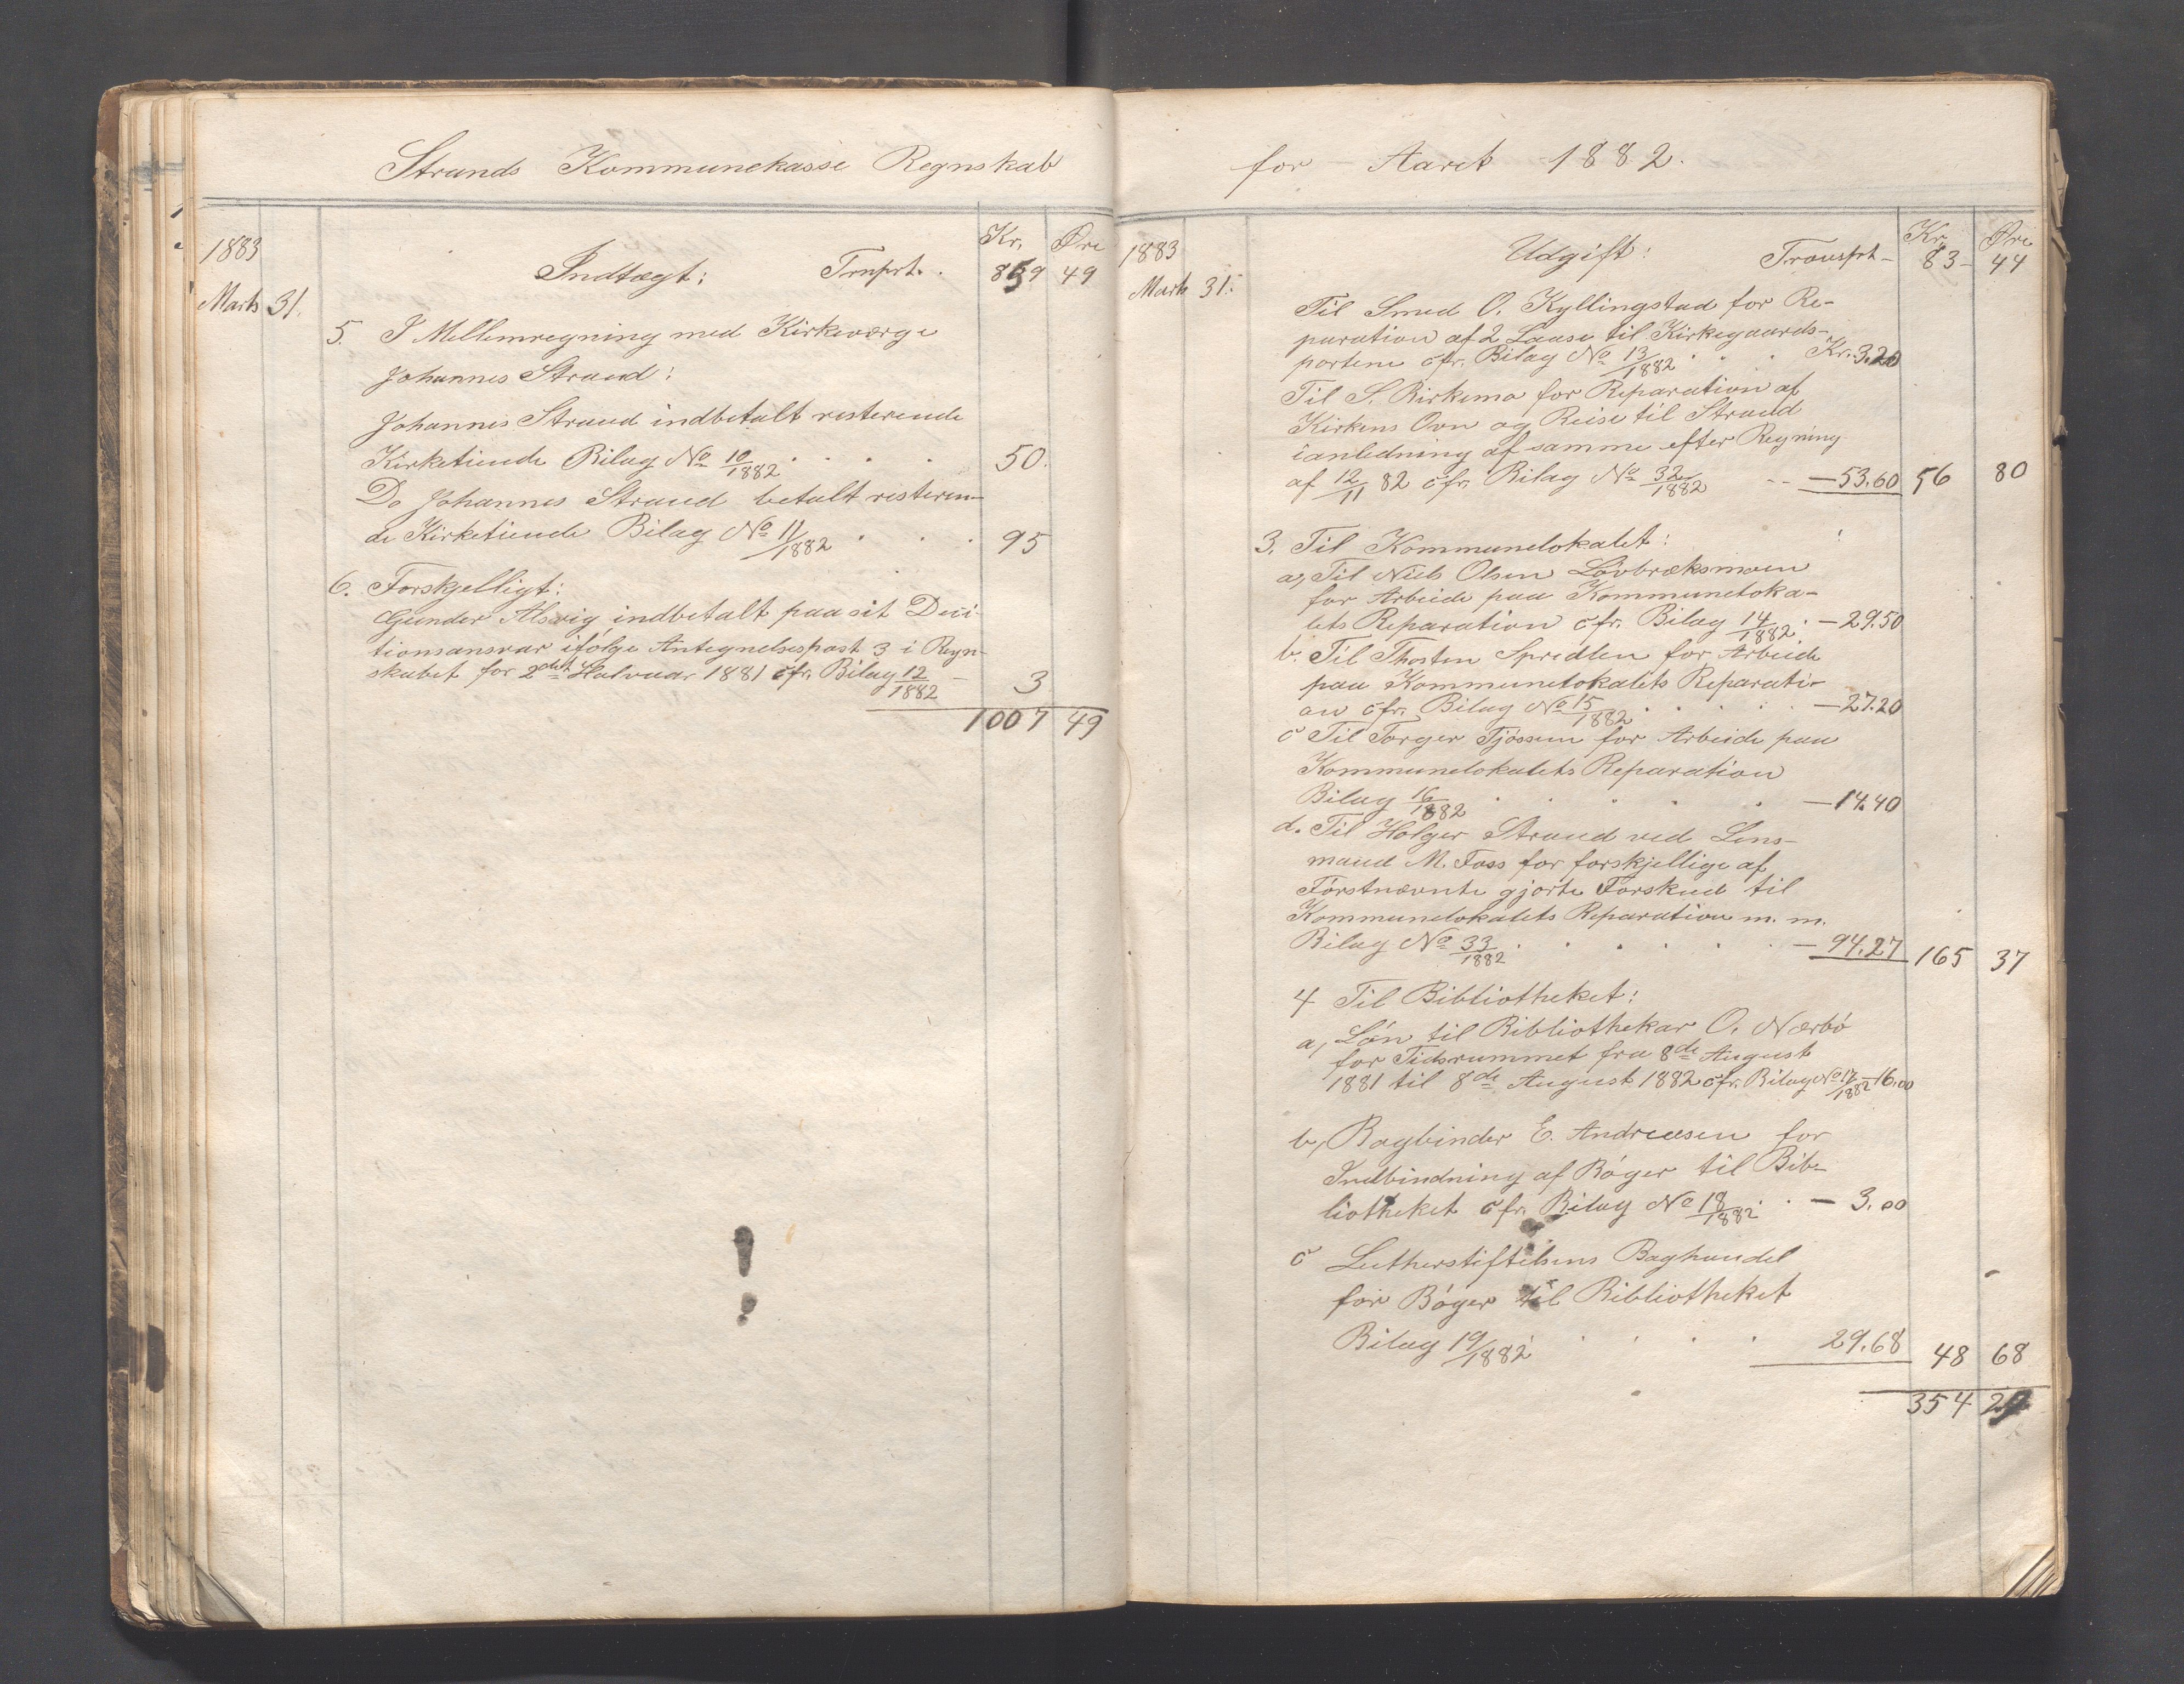 Strands Kommunekasse Regnskab
1883
Kr. Øre
Indtægt: Trnsprt. 859 49
Marts 31.
5. I Mellemregning med Kirkeværge
Johannes Strand:
Johannes Strand indbetalt resterende
Kirketiende Bilag No 10/1882 . . . . 50.
Do Johannes Strand betalt resteren-
de Kirketiende Bilag No 11/1882 . . . 95
6. Forskjelligt:
Gunder Alsvig indbetalt paa sit Deci-
tionsansvar ifølge Antegnelsespost 3 i Regn-
skabet for 2det Halvaar 1881 cfr. Bilag 12/1882 – 3
1007 49
for Aaret 1882.
1883
Kr. Øre
Udgift: Transprt – 83 – 44
Marts 31.
Til Smed O. Kyllingstad for Re-
paration af 2 Laase til Kirkegaards-
portene cfr. Bilag No 13/1882 . . . Kr. 3.20
Til S. Birkemo for Reparation af
Kirkens Ovn og Reise til Strand
ianledning af samme efter Regning
af 12/11 82 cfr. Bilag No 32/1882 -- – 53.60 56 80
3. Til Kommunelokalet:
a, Til Niels Olsen Løvbræksmoen
for Arbeide paa Kommuneloka-
lets Reparation cfr. Bilag 14/1882 . – 29.50
b. Til Thosten Spredlen for Arbeide
paa Kommunelokalets Reparati-
on cfr. Bilag No 15/1882 . . . . . – 27.20
c Til Torger Tjøssem for Arbeide paa
Kommunelokalets Reparation
Bilag 16/1882 . . . . . – 14.40
d. Til Holger Strand ved Lens-
mand M. Foss for forskjellige af
Førstnævnte gjorte Forskud til
Kommunelokalets Reparation m. m.
Bilag No 33/1882 . . . . . – 94.27 165 37
4 Til Bibliotheket:
a, Løn til Bibliothekar O. Nærbø
for Tidsrummet fra 8de August
1881 til 8de August 1882 cfr. Bilag No 17/1882 – 16.00
b, Bogbinder E. Andreasen for
Indbindning af Bøger til Bib-
liotheket cfr. Bilag No 18/1882 . . – 3.00
c Lutherstiftelsens Boghandel
for Bøger til Bibliotheket
Bilag 19/1882 . . . . 29.68 48 68
354 29